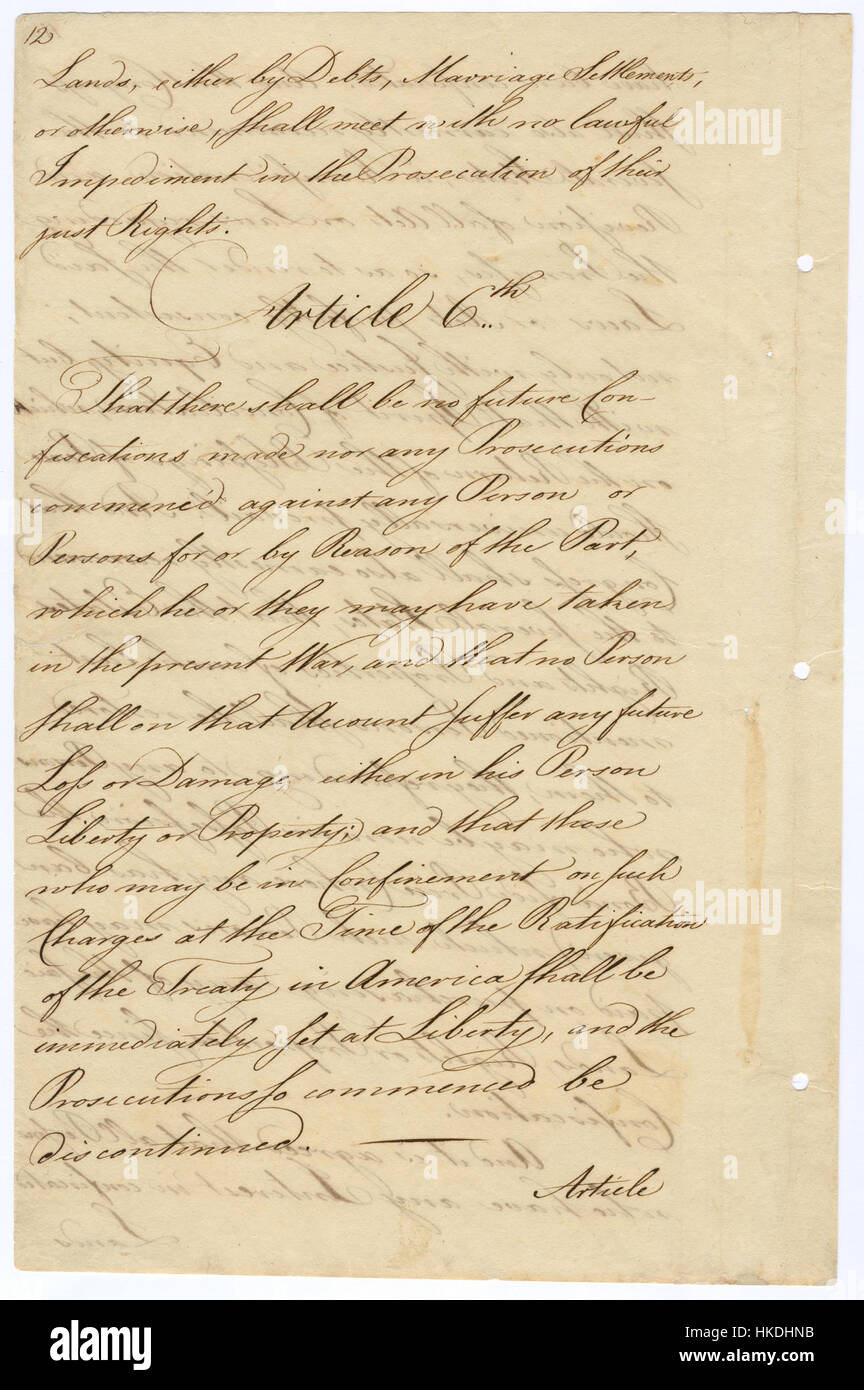 12
Lands, either by Debts, Marriage Settlements,
or otherwise, shall meet with no lawful
Impediment in the Prosecution of their
just Rights.
Article 6.th
That there shall be no future Con-
fiscations made nor any Prosecutions
commenc'd against any Person or
Persons for or by Reason of the Part,
which he or they may have taken
in the present War, and that no Person
shall on that Account suffer any future
Loss or Damage, either in his Person
Liberty or Property; and that those
who may be in Confinement on such
Charges at the Time of the Ratification
of the Treaty in America shall be
immediately set at Liberty, and the
Prosecutions so commenced be
discontinued.
Article
alamy
alamy
Image ID: HKDHNB
www.alamy.com